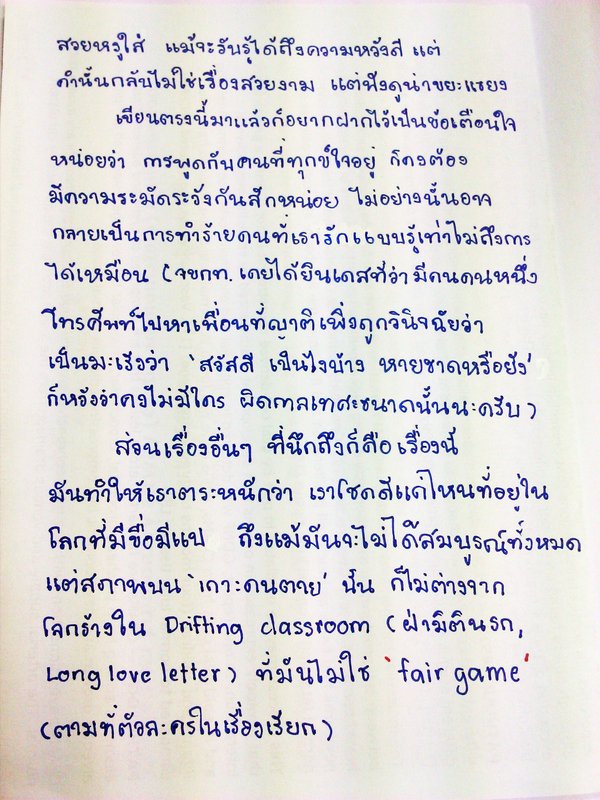 สวยหรูใส่ แม้จะรับรู้ได้ถึงความหวังดี แต่
คำนั้นกลับไม่ใช่เรื่องสวยงาม แต่ฟังดูน่าขยะแขยง
เขียนตรงนี้มาแล้วก็อยากฝากไว้เป็นข้อเตือนใจ
หน่อยว่า การพูดกับคนที่ทุกข์ใจอยู่ ก็คงต้อง
มีความระมัดระวังกันสักหน่อย ไม่อย่างนั้นอาจ
กลายเป็นการทำร้ายคนที่เรารักแบบรู้เท่าไม่ถึงการ
ได้เหมือน (จขกท. เคยได้ยินเคสที่ว่า มีคนคนหนึ่ง
โทรศัพท์ไปหาเพื่อนที่ญาติเพิ่งถูกวินิจฉัยว่า
เป็นมะเร็งว่า 'สวัสดี เป็นไงบ้าง หายขาดหรือยัง'
ก็หวังว่าคงไม่มีใคร ผิดกาลเทศะขนาดนั้นนะครับ)
ส่วนเรื่องอื่นๆ ที่นึกถึงก็คือ เรื่องนี้
มันทำให้เราตระหนักว่า เราโชคดีแค่ไหนที่อยู่ใน
โลกที่มีขื่อมีแป ถึงแม้มันจะไม่ได้สมบูรณ์ทั้งหมด
แต่สภาพบน 'เกาะคนตาย' นั้น ก็ไม่ต่างจาก
โลกร้างใน Drifting classroom (ฝ่ามิตินรก,
Long love letter) ที่มันไม่ใช่ 'fair game'
(ตามที่ตัวละครในเรื่องเรียก)